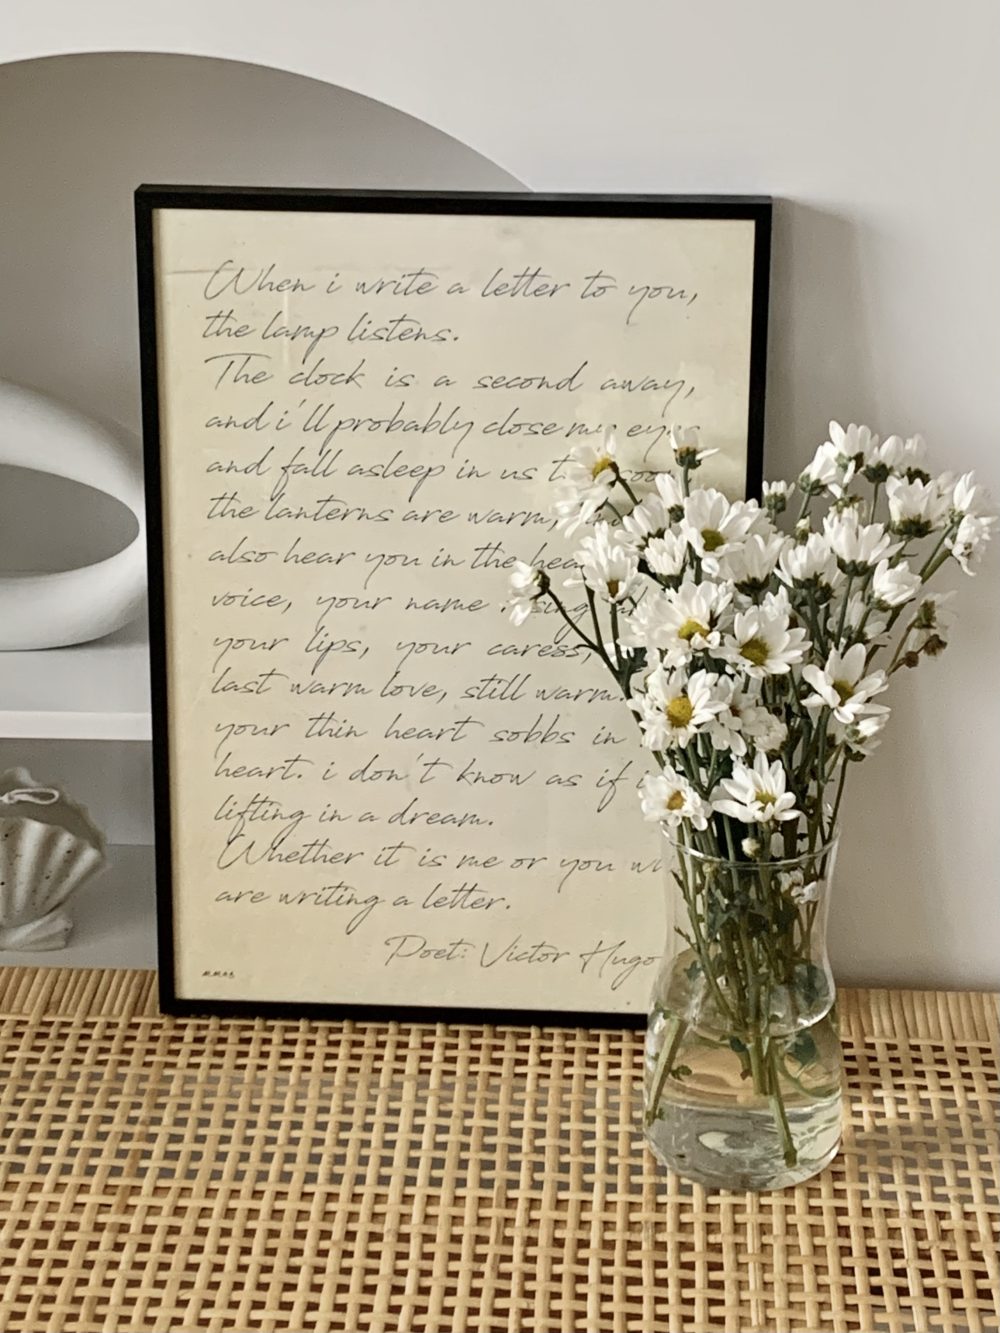 When i write a letter to you,
the lamp listens.
The clock is a second away,
and i'll probably close my eyes
and fall asleep in us
the lanterns are warm,
also hear you in the
voice, your name
your lips, your caress,
last warm love, still warm.
your thin heart sobbs in
heart. i don't know as if
lifting in a dream.
Whether it is me or you
are writing a letter.
Poet: Victor Hugo